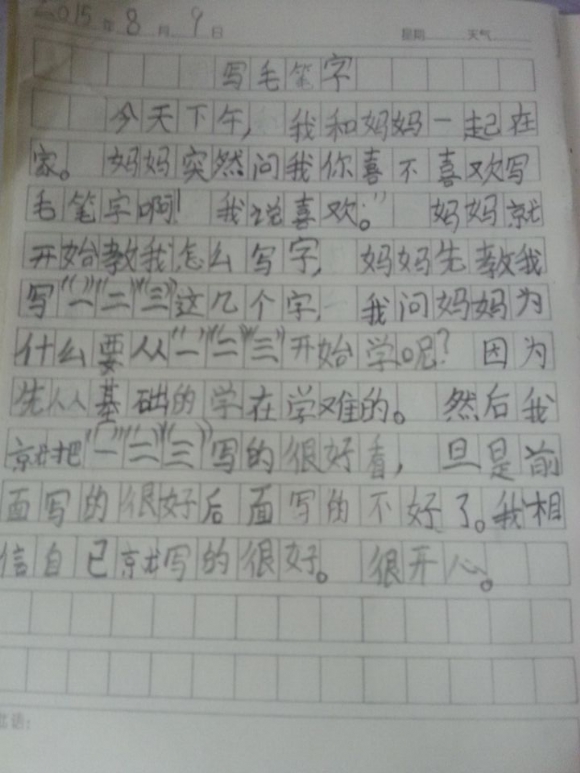 2015年8月9日 星期 天气
写毛笔字
今天下午，我和妈妈一起在
家。妈妈突然问我你喜不喜欢写
毛笔字啊！我说喜欢。” 妈妈就
开始教我怎么写字，妈妈先教我
写“一”“二”“三”这几个字. 我问妈妈为
什么要从“一”“二”“三”开始学呢？因为
先从基础的学在学难的。然后我
就把“一”“二”“三”写的很好看，旦是前
面写的很好后面写的不好了。我相
信自已就写的很好。很开心。